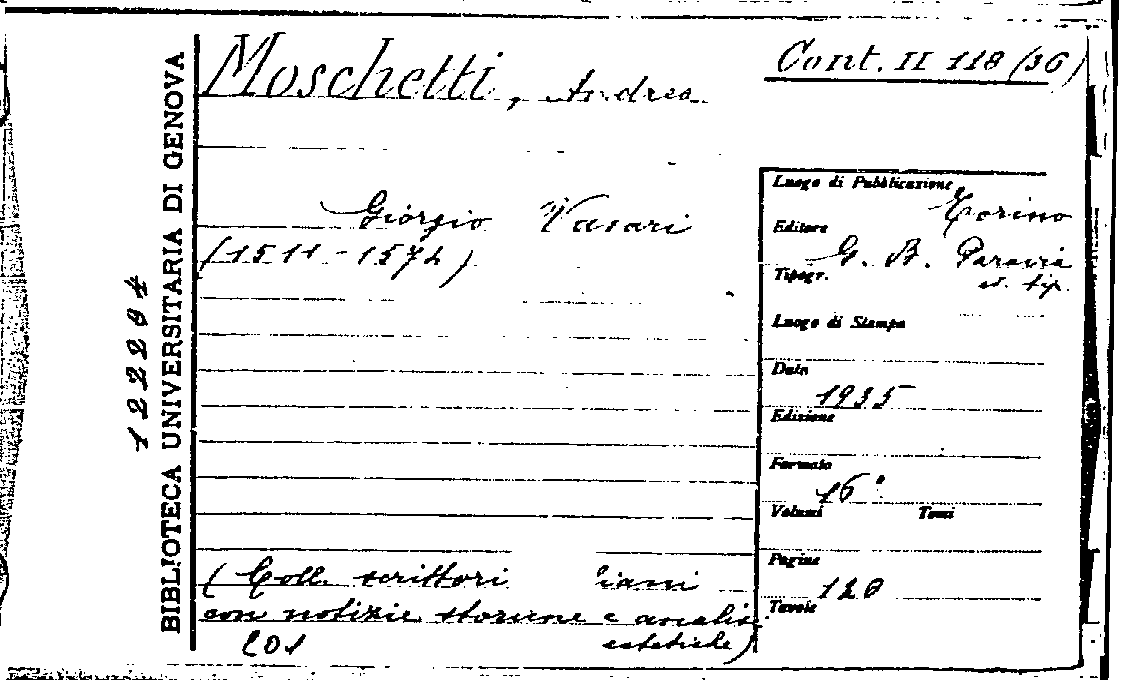 Moschetti, Andrea
Cont. II 118 (36)
BIBLIOTECA UNIVERSITARIA DI GENOVA
12204
Giorgio Vasari
(1511-1574)
Luogo di Pubblicazione
Torino
Editore
G. B. Paravia
Tipogr.
et. tip.
Luogo di Stampa
Data
1935
Edizione
Formato
16°
Volumi Tomi
Pagine
Tavole
(Coll. scrittori iani
con notizie storiche e analisi
estetiche)